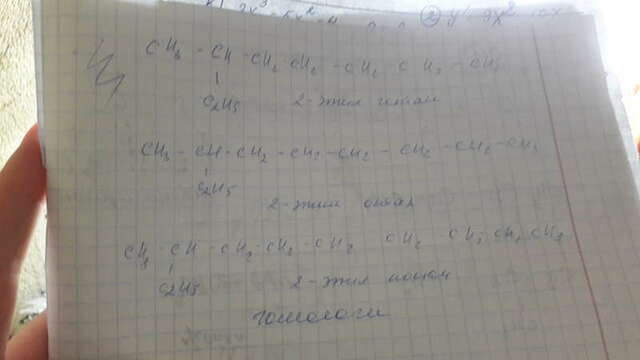 2x³
② y' 9x²
CH₃ - CH - CH₂ CH₂ - CH₂ CH₂ - CH₃
C₂H₅
2-этил гептан
CH₃ - CH - CH₂ - CH₂ - CH₂ - CH₂ - CH₂ - CH₃
C₂H₅
2-этил октан
CH₃ - CH - CH₂ - CH₂ - CH₂ CH₂ CH₂ CH₂ CH₃
C₂H₅
2-этил нонан
гомологи